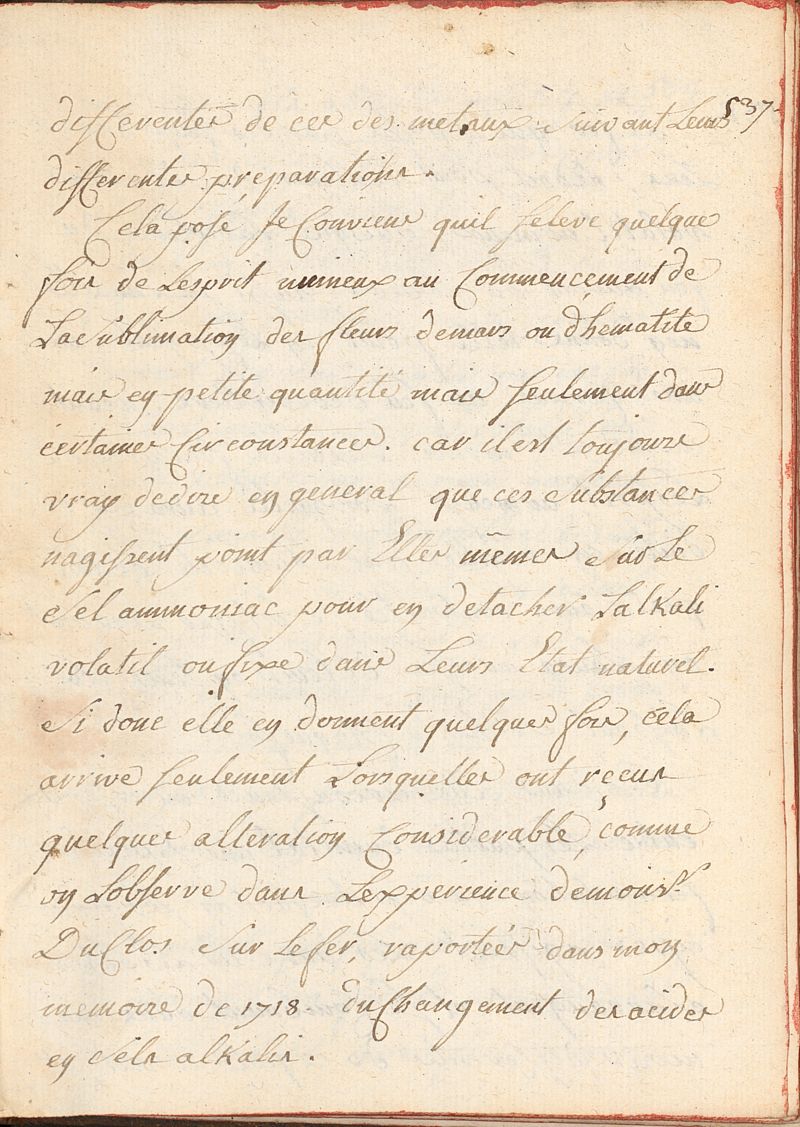 537.
differentes de ces des metaux suivant Leurs
differentes preparations.
Cela posé Je Conviens quil s'eleve quelque
fois de Lesprit urineux au Commencement de
La Sublimation des fleurs de mars ou d'hematite
mais en petite quantité mais seulement dans
certaines Circonstances. car il est toujours
vray de dire en general que ces Substances
nagissent point par Elles mêmes Sur Le
Sel ammoniac pour en detacher L'alkali
volatil ou fixe dans Leurs Etat naturel.
Si donc elle en donnent quelques fois, cela
arrive seulement Lorsquelles ont receus
quelques alteration Considerable, comme
on Lobserve dans Lexperience de monsr.
DuClos Sur le fer, raportées dans mon
memoire de 1718. du Changement des acides
en Sels alkalis.